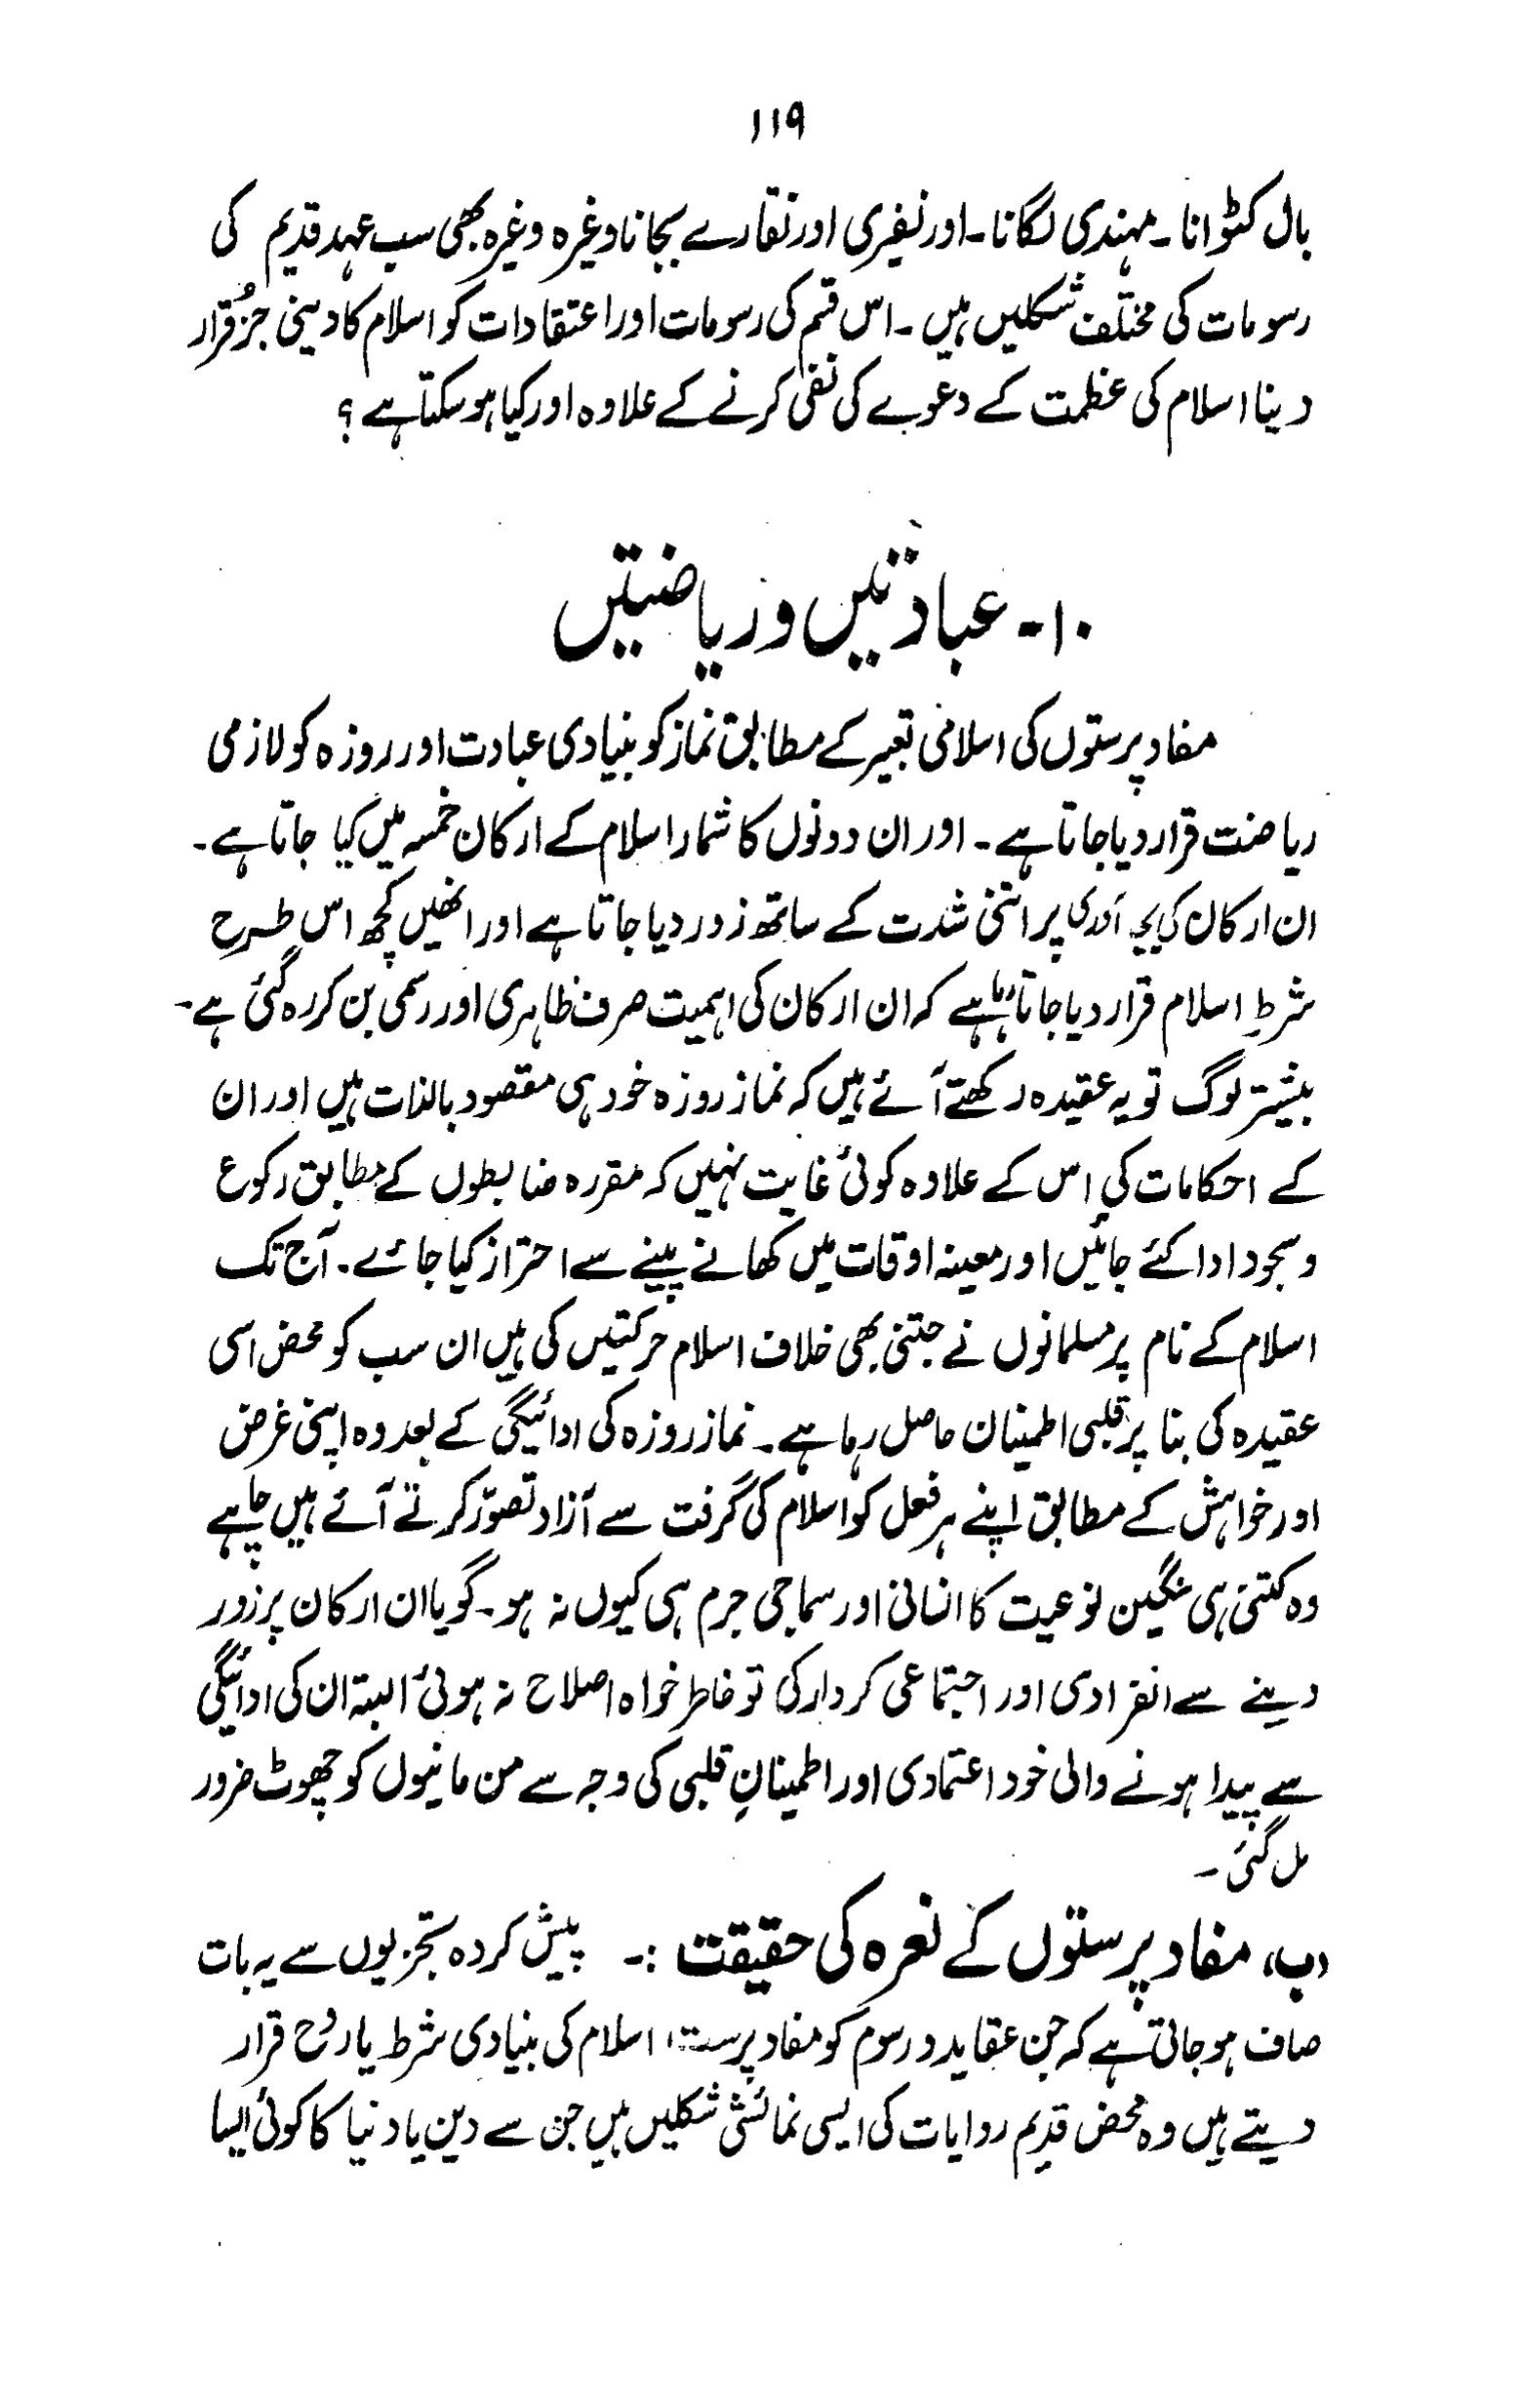 ۱۱۹
بال کٹوانا۔ مہندی لگانا۔ اور نفیری اور نقارے بجانا وغیرہ وغیرہ بھی سب عہد قدیم کی
رسومات کی مختلف شکلیں ہیں۔ اس قسم کی رسومات اور اعتقادات کو اسلام کا دینی جُز قرار
دینا اسلام کی عظمت کے دعوے کی نفی کرنے کے علاوہ اور کیا ہو سکتا ہے؟
۱۰۔ عبادتیں و ریاضتیں
مفاد پرستوں کی اسلامی تعبیر کے مطابق نماز کو بنیادی عبادت اور روزہ کو لازمی
ریاضت قرار دیا جاتا ہے۔ اور ان دونوں کا شمار اسلام کے ارکان خمسہ میں کیا جاتا ہے۔
ان ارکان کی پر اتنی شدت کے ساتھ زور دیا جاتا ہے اور انھیں کچھ اس طرح
شرطِ اسلام قرار دیا جاتا رہا ہے کہ ان ارکان کی اہمیت صرف ظاہری اور رسمی بن کر رہ گئی ہے۔
بیشتر لوگ تو یہ عقیدہ رکھتے آئے ہیں کہ نماز روزہ خود ہی مقصود بالذات ہیں اور ان
کے احکامات کی اس کے علاوہ کوئی غایت نہیں کہ مقررہ ضابطوں کے مطابق رکوع
و سجود ادا کئے جائیں اور معینہ اوقات میں کھانے پینے سے احتراز کیا جائے۔ آج تک
اسلام کے نام پر مسلمانوں نے جتنی بھی خلاف اسلام حرکتیں کی ہیں ان سب کو محض اسی
عقیدہ کی بنا پر قلبی اطمینان حاصل رہا ہے۔ نماز روزہ کی ادائیگی کے بعد وہ اپنی غرض
اور خواہش کے مطابق اپنے ہر فعل کو اسلام کی گرفت سے آزاد تصوّر کرتے آئے ہیں چاہے
وہ کتنی ہی سنگین نوعیت کا انسانی اور سماجی جرم ہی کیوں نہ ہو۔ گویا ان ارکان پر زور
دینے سے انفرادی اور اجتماعی کردار کی تو خاطر خواہ اصلاح نہ ہوئی البتہ ان کی ادائیگی
سے پیدا ہونے والی خود اعتمادی اور اطمینانِ قلبی کی وجہ سے من مانیوں کو چھوٹ ضرور
مل گئی۔
(ب) مفاد پرستوں کے نعرہ کی حقیقت :۔ پیش کردہ تجزیوں سے یہ بات
صاف ہو جاتی ہے کہ جن عقاید و رسوم کو مفاد پرست اسلام کی بنیادی شرط یا روح قرار
دیتے ہیں وہ محض قدیم روایات کی ایسی نمائشی شکلیں ہیں جن سے دین یا دنیا کا کوئی ایسا